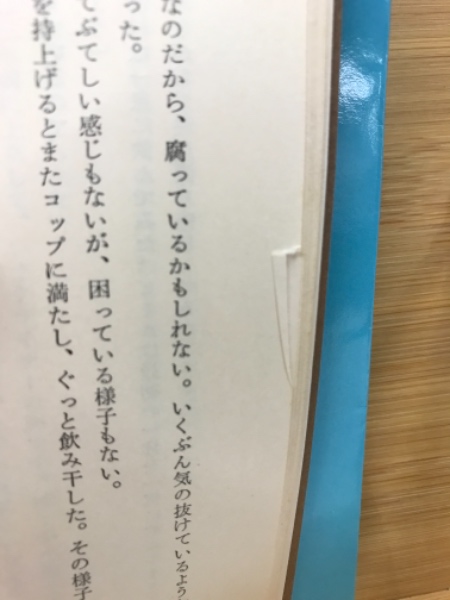 なのだから、腐っているかもしれない。いくぶん気の抜けているよう
った。
てぶてしい感じもないが、困っている様子もない。
を持上げるとまたコップに満たし、ぐっと飲み干した。その様子